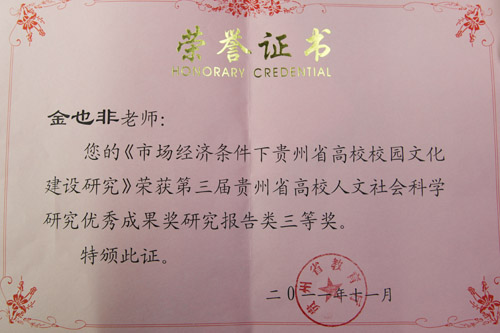 荣誉证书
HONORARY CREDENTIAL
金也非老师：
您的《市场经济条件下贵州省高校校园文化
建设研究》荣获第三届贵州省高校人文社会科学
研究优秀成果奖研究报告类三等奖。
特颁此证。
贵州省教育
二〇一一年十一月